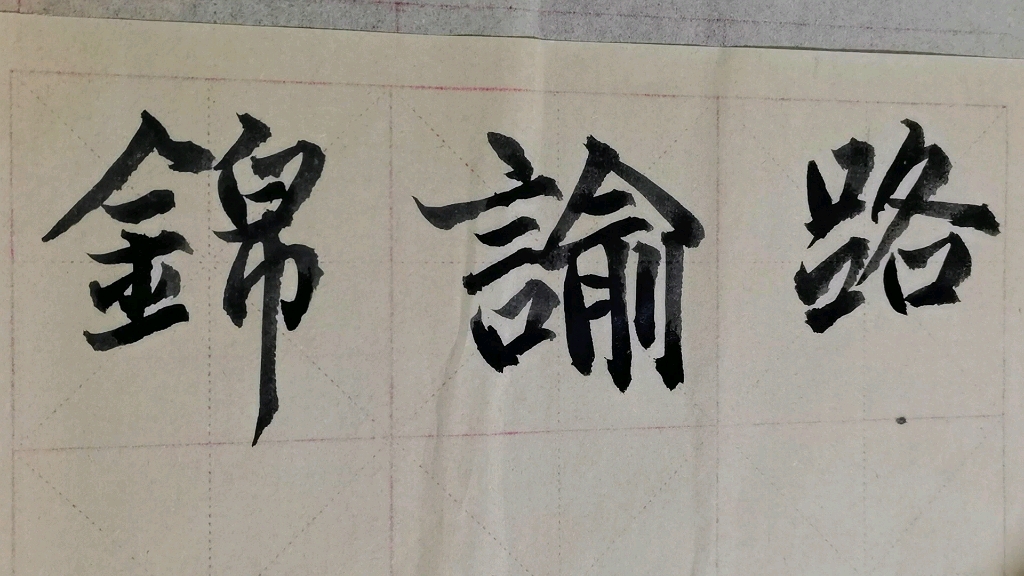 錦諭路